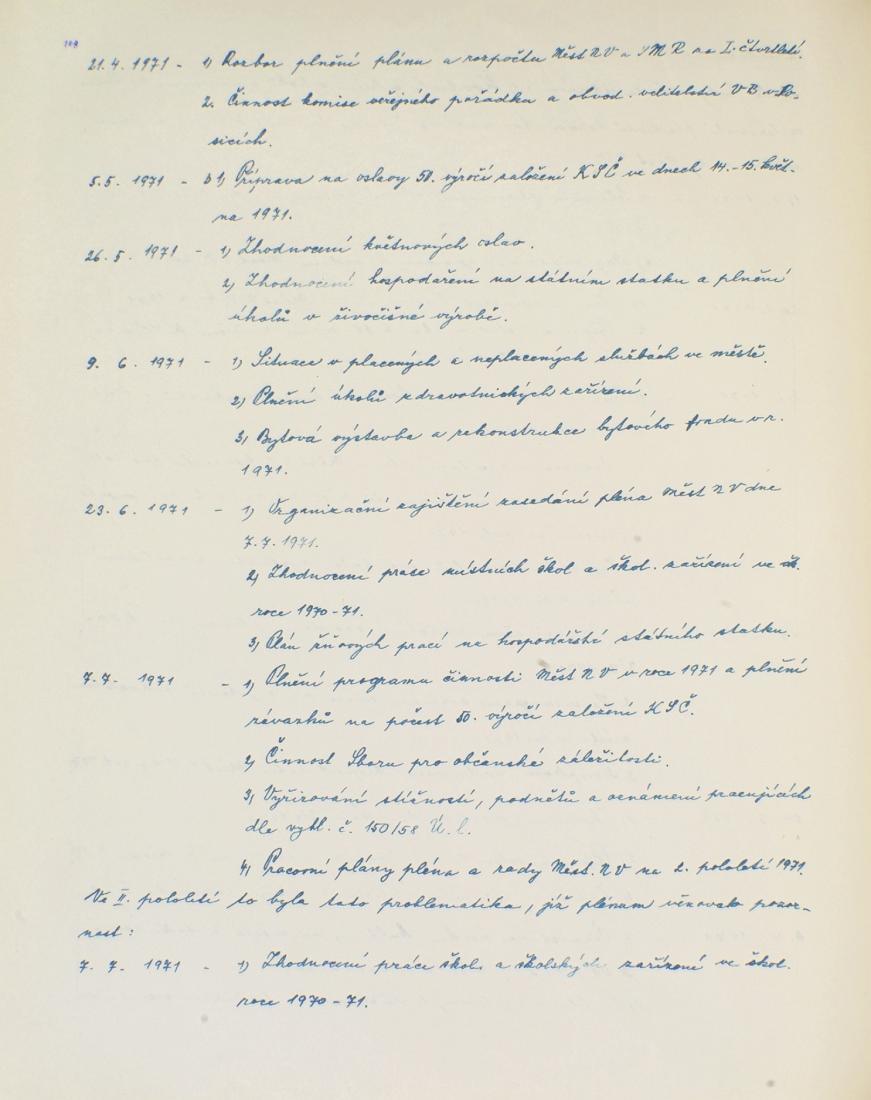 21.4.1971 - 1) Rozbor plnění plánu a rozpočtu Měst NV a SMR za I. čtvrtletí.
2. Činnost komise veřejného pořádku a obvod. velitelství VB v Po-
sicích.
5.5. 1971 - 1) Příprava na oslavy 50. výročí založení KSČ ve dnech 14.-15. květ-
na 1971.
26.5. 1971 - 1) Zhodnocení květnových oslav.
2) Zhodnocení hospodaření na státním statku a plnění
úkolů v živočišné výrobě.
9. 6. 1971 - 1) Situace v placených a neplacených službách ve městě.
2) Plnění úkolů zdravotnických zařízení.
3) Bytová výstavba a rekonstrukce bytového fondu v r.
1971.
23. 6. 1971 - 1) Organizační zajištění zasedání pléna Měst NV dne
7.7.1971.
2) Zhodnocení práce místních škol a škol. zařízení ve šk.
roce 1970-71.
3) Plán žňových prací na hospodářství státního statku.
7.7. 1971 - 1) Plnění programu činnosti Měst NV v roce 1971 a plnění
závazků na počest 50. výročí založení KSČ.
2) Činnost Sboru pro občanské záležitosti.
3) Vyřizování stížností, podnětů a oznámení pracujících
dle vyhl. č. 150/58 Ú. l.
4) Pracovní plány pléna a rady Měst. NV na 2. pololetí 1971.
Ve II. pololetí to byla tato problematika, jíž plénum věnovalo pozor-
nost:
7. 7. 1971 - 1) Zhodnocení práce škol a školských zařízení ve škol.
roce 1970-71.